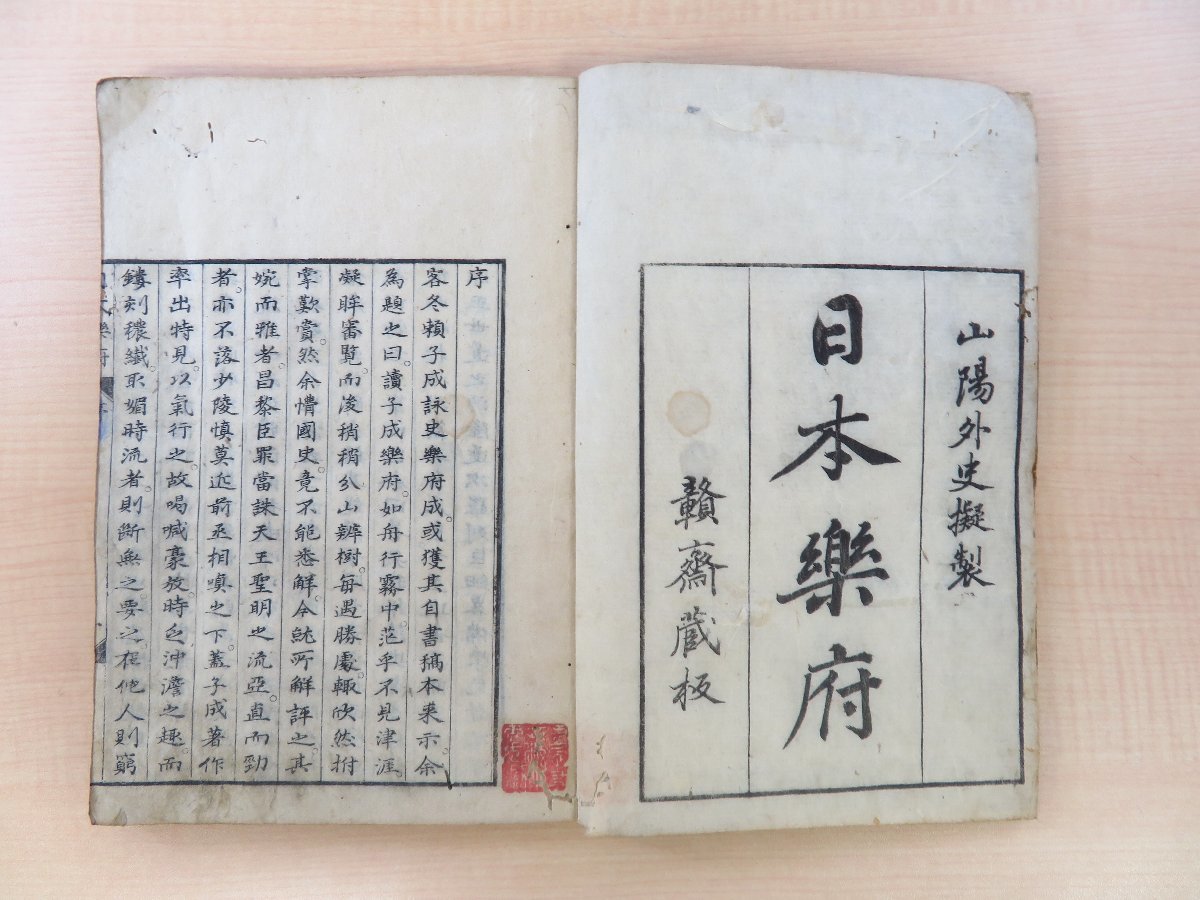 山陽外史擬製
日本樂府
贛齋蔵板
序
客冬賴子成詠史樂府成。或獲其自書稿本来示。余
為題之曰。讀子成樂府。如舟行霧中。茫乎不見津涯。
凝眸審覽。而後稍稍分山辨樹。每遇勝處。輒欣然拊
掌歎賞。然余懵國史。竟不能悉解。今就所解評之。其
婉而雅者。昌黎臣罪當誅天王聖明之流亞。直而勁
者。亦不落少陵慎莫近前丞相嗔之下。蓋子成著作
率出特見。以氣行之。故喝喊豪放。時乏沖澹之趣。而
鏤刻穠纖。取媚時流者。則斷無之。要之。在他人則窮